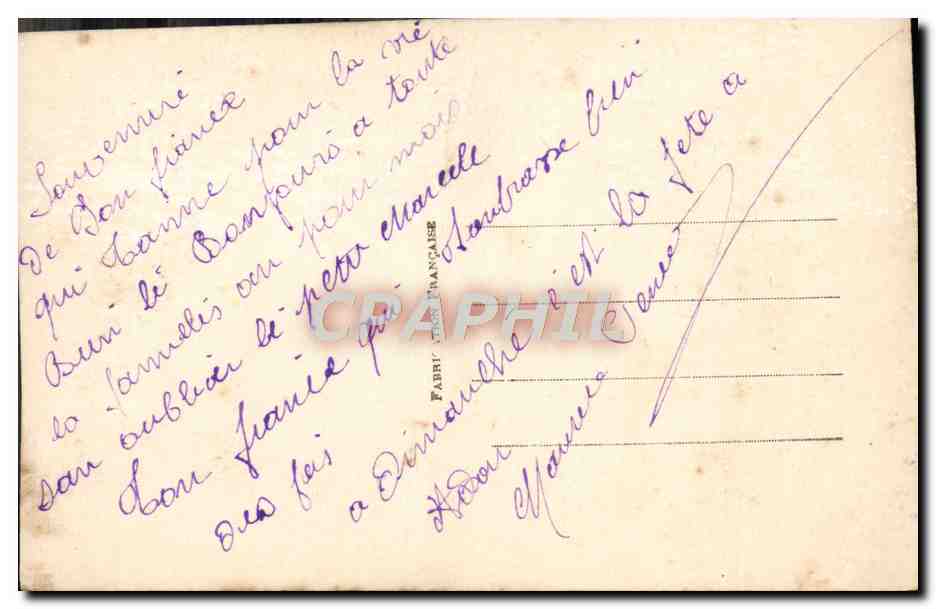 Souvenire
De Ton fiance
qui t'anme pour la vié
Bien lé Bonjours a toute
la famélis an pour mois
san oublier lé petit Marcelle
Ton fiancé qui t'anbrasse bien
des fois
a Dimanche s'est la fete a
FABRICATION FRANÇAISE
CPAPHIL